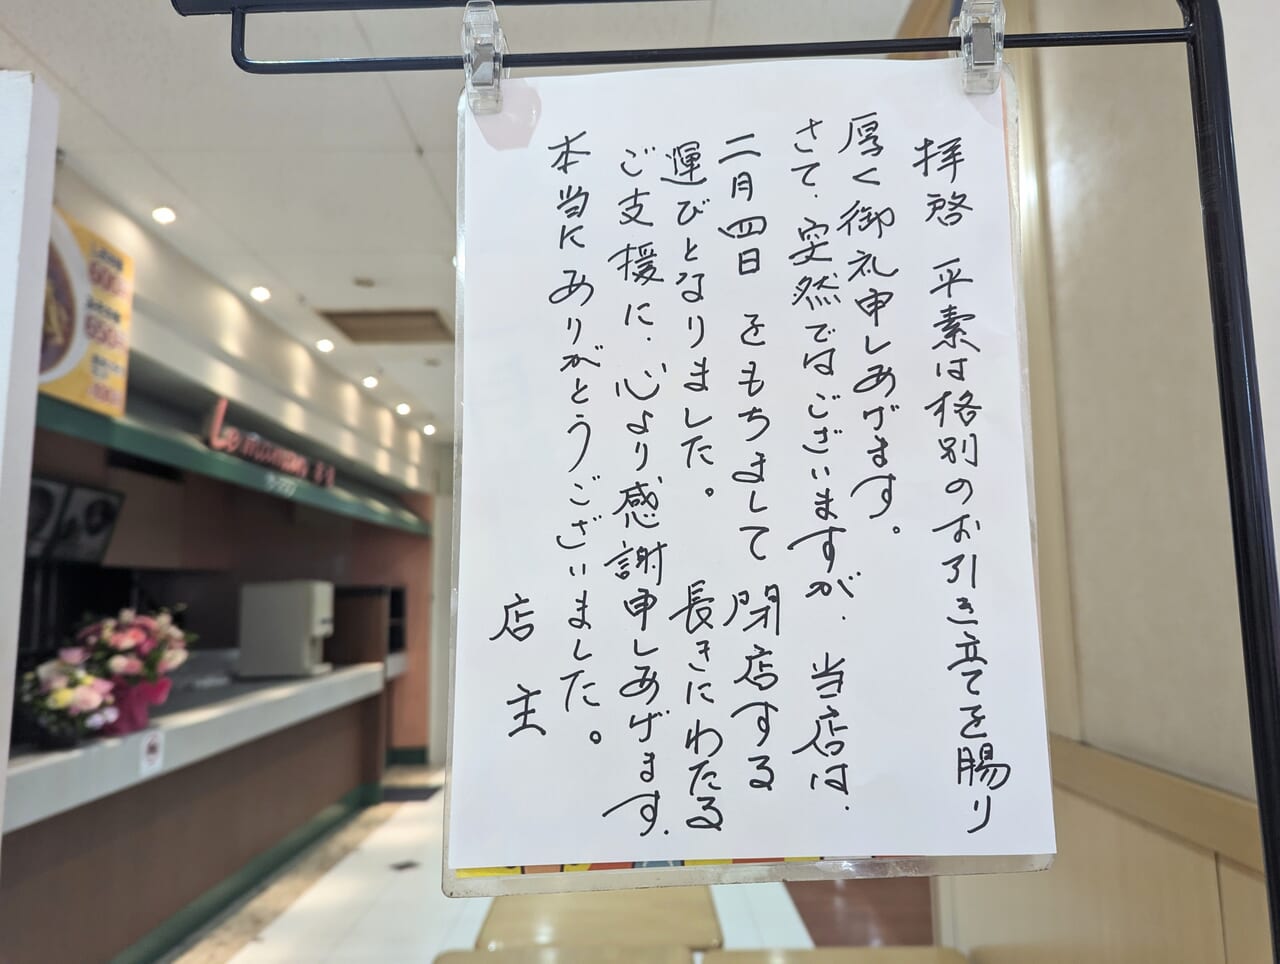 拝啓 平素は格別のお引き立てを賜り
厚く御礼申しあげます。
さて、突然ではございますが、当店は、
二月四日をもちまして閉店する
運びとなりました。長きにわたる
ご支援に、心より感謝申しあげます。
本当にありがとうございました。
店主
600
650